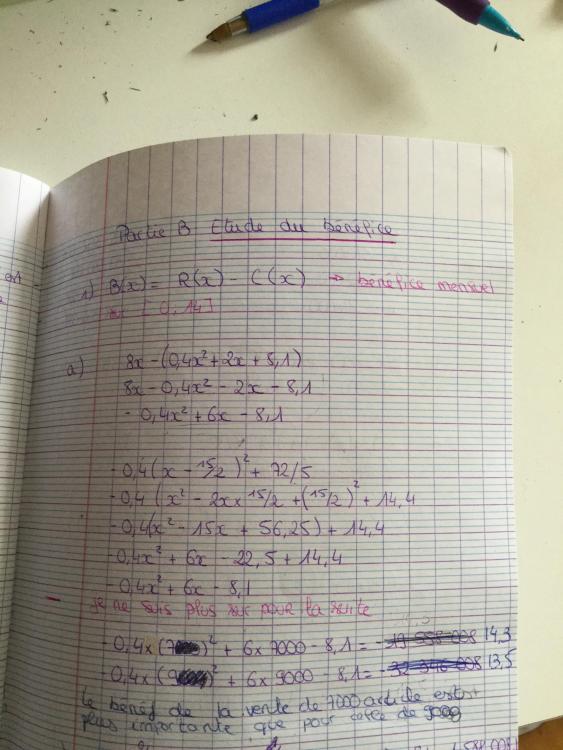 Partie B Etude du bénéfice
1) B(x) = R(x) - C(x) → bénéfice mensuel
sur [0,14]
a) 8x - (0,4x² + 2x + 8,1)
8x - 0,4x² - 2x - 8,1
- 0,4x² + 6x - 8,1
- 0,4 (x - 15/2)² + 72/5
- 0,4 (x² - 2x × 15/2 + (15/2)² + 14,4
- 0,4(x² - 15x + 56,25) + 14,4
- 0,4x² + 6x - 22,5 + 14,4
- 0,4x² + 6x - 8,1
je ne suis plus sur pour la suite
- 0,4 × (7)² + 6 × 7000 - 8,1 = 14,3
- 0,4 × (9)² + 6 × 9000 - 8,1 = 13,5
le bénéf de la vente de 7000 article est
plus importante que pour celle de 9000